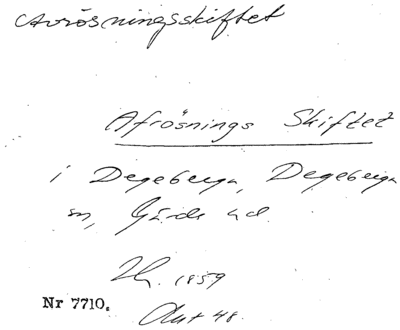 Avrösningsskiftet
Afrösnings Skiftet
i Degeberga, Degeberga
sn, Gärds hd.
1859
Nr 7710.
Akt 48.